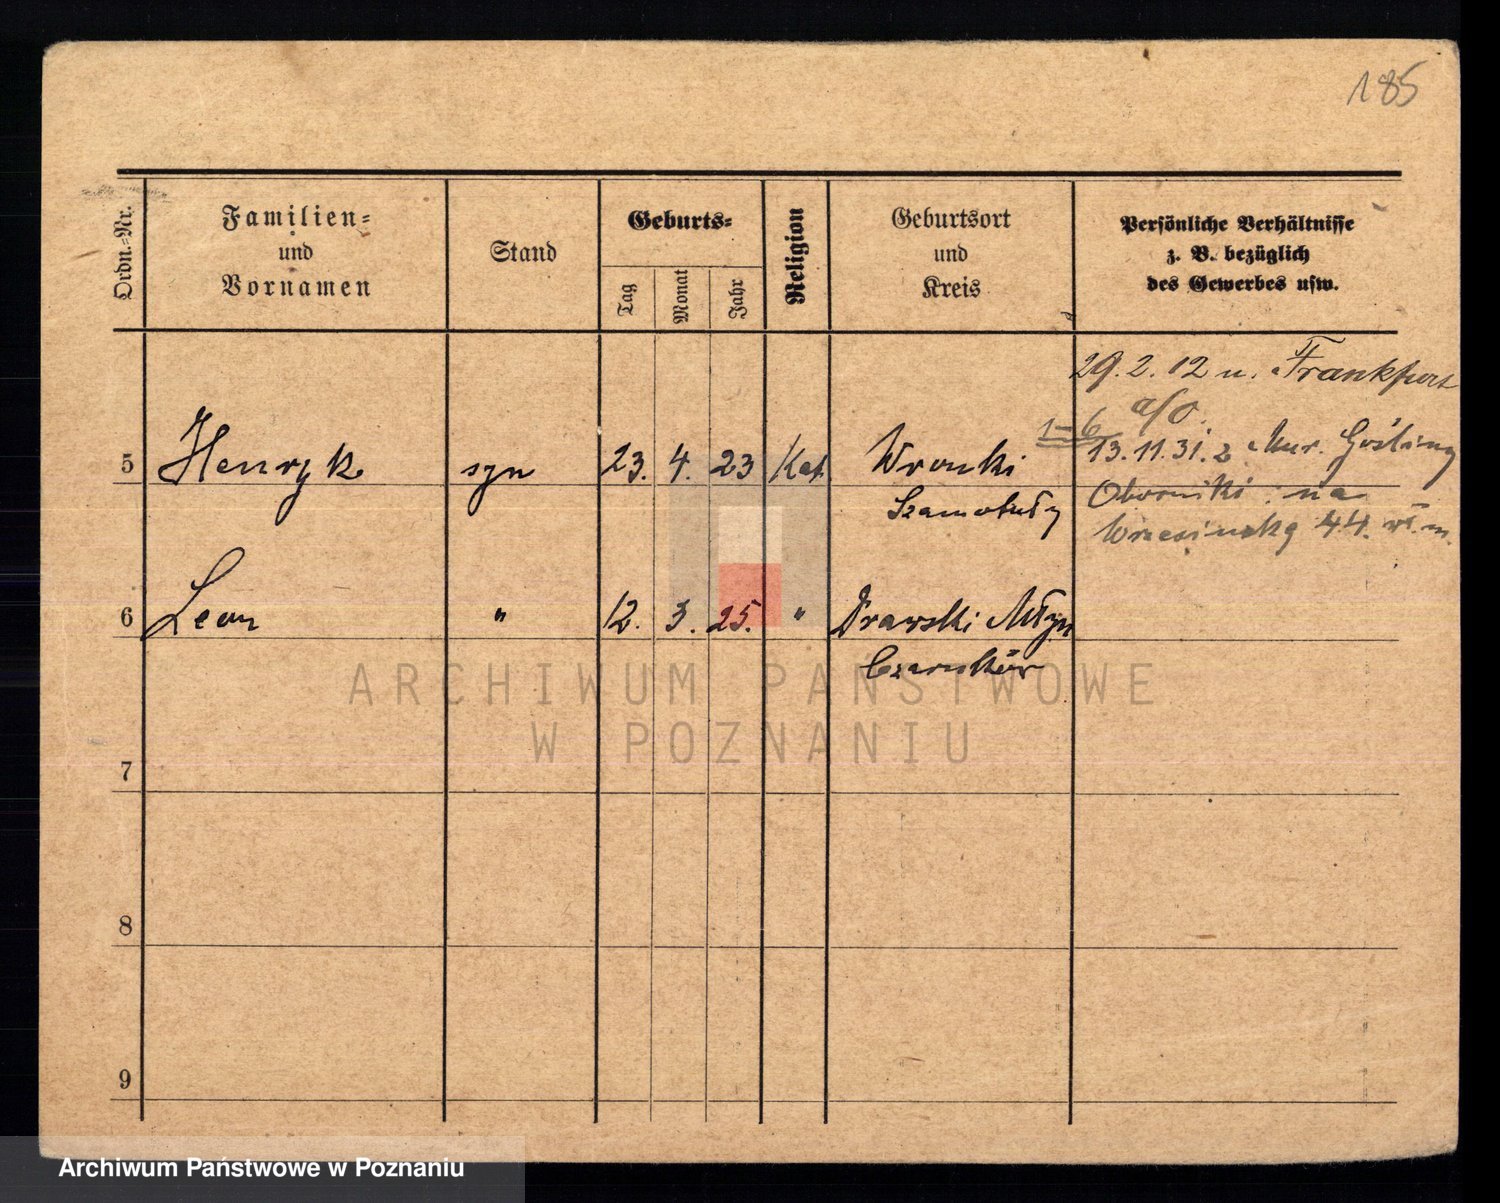 185
Ordn.=Nr.
Familien=
und
Vornamen
Stand
Geburts=
Tag
Monat
Jahr
Religion
Geburtsort
und
Kreis
Persönliche Verhältnisse
z. B. bezüglich
des Gewerbes usw.
29.2.12 n. Frankfurt
a/O.
1-6
5 Henryk syn 23. 4. 23 Kat. Wronki
Szamotuły
13.11.31. z Mur. Gośliny
Oborniki na
Wrzesińską 44. wł. m.
6 Leon " 12. 3. 25. " Drawski Młyn
Czarnków
7
8
9
ARCHIWUM PAŃSTWOWE
W POZNANIU
Archiwum Państwowe w Poznaniu